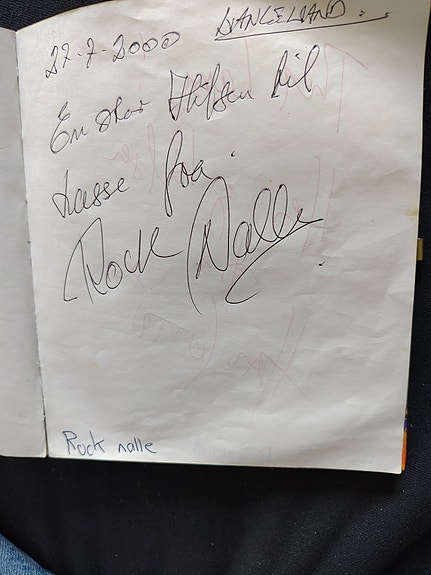 27-7-2000 LANGELAND.
En stor Hilsen til
Lasse fra.
Rock Nalle
Rock nalle